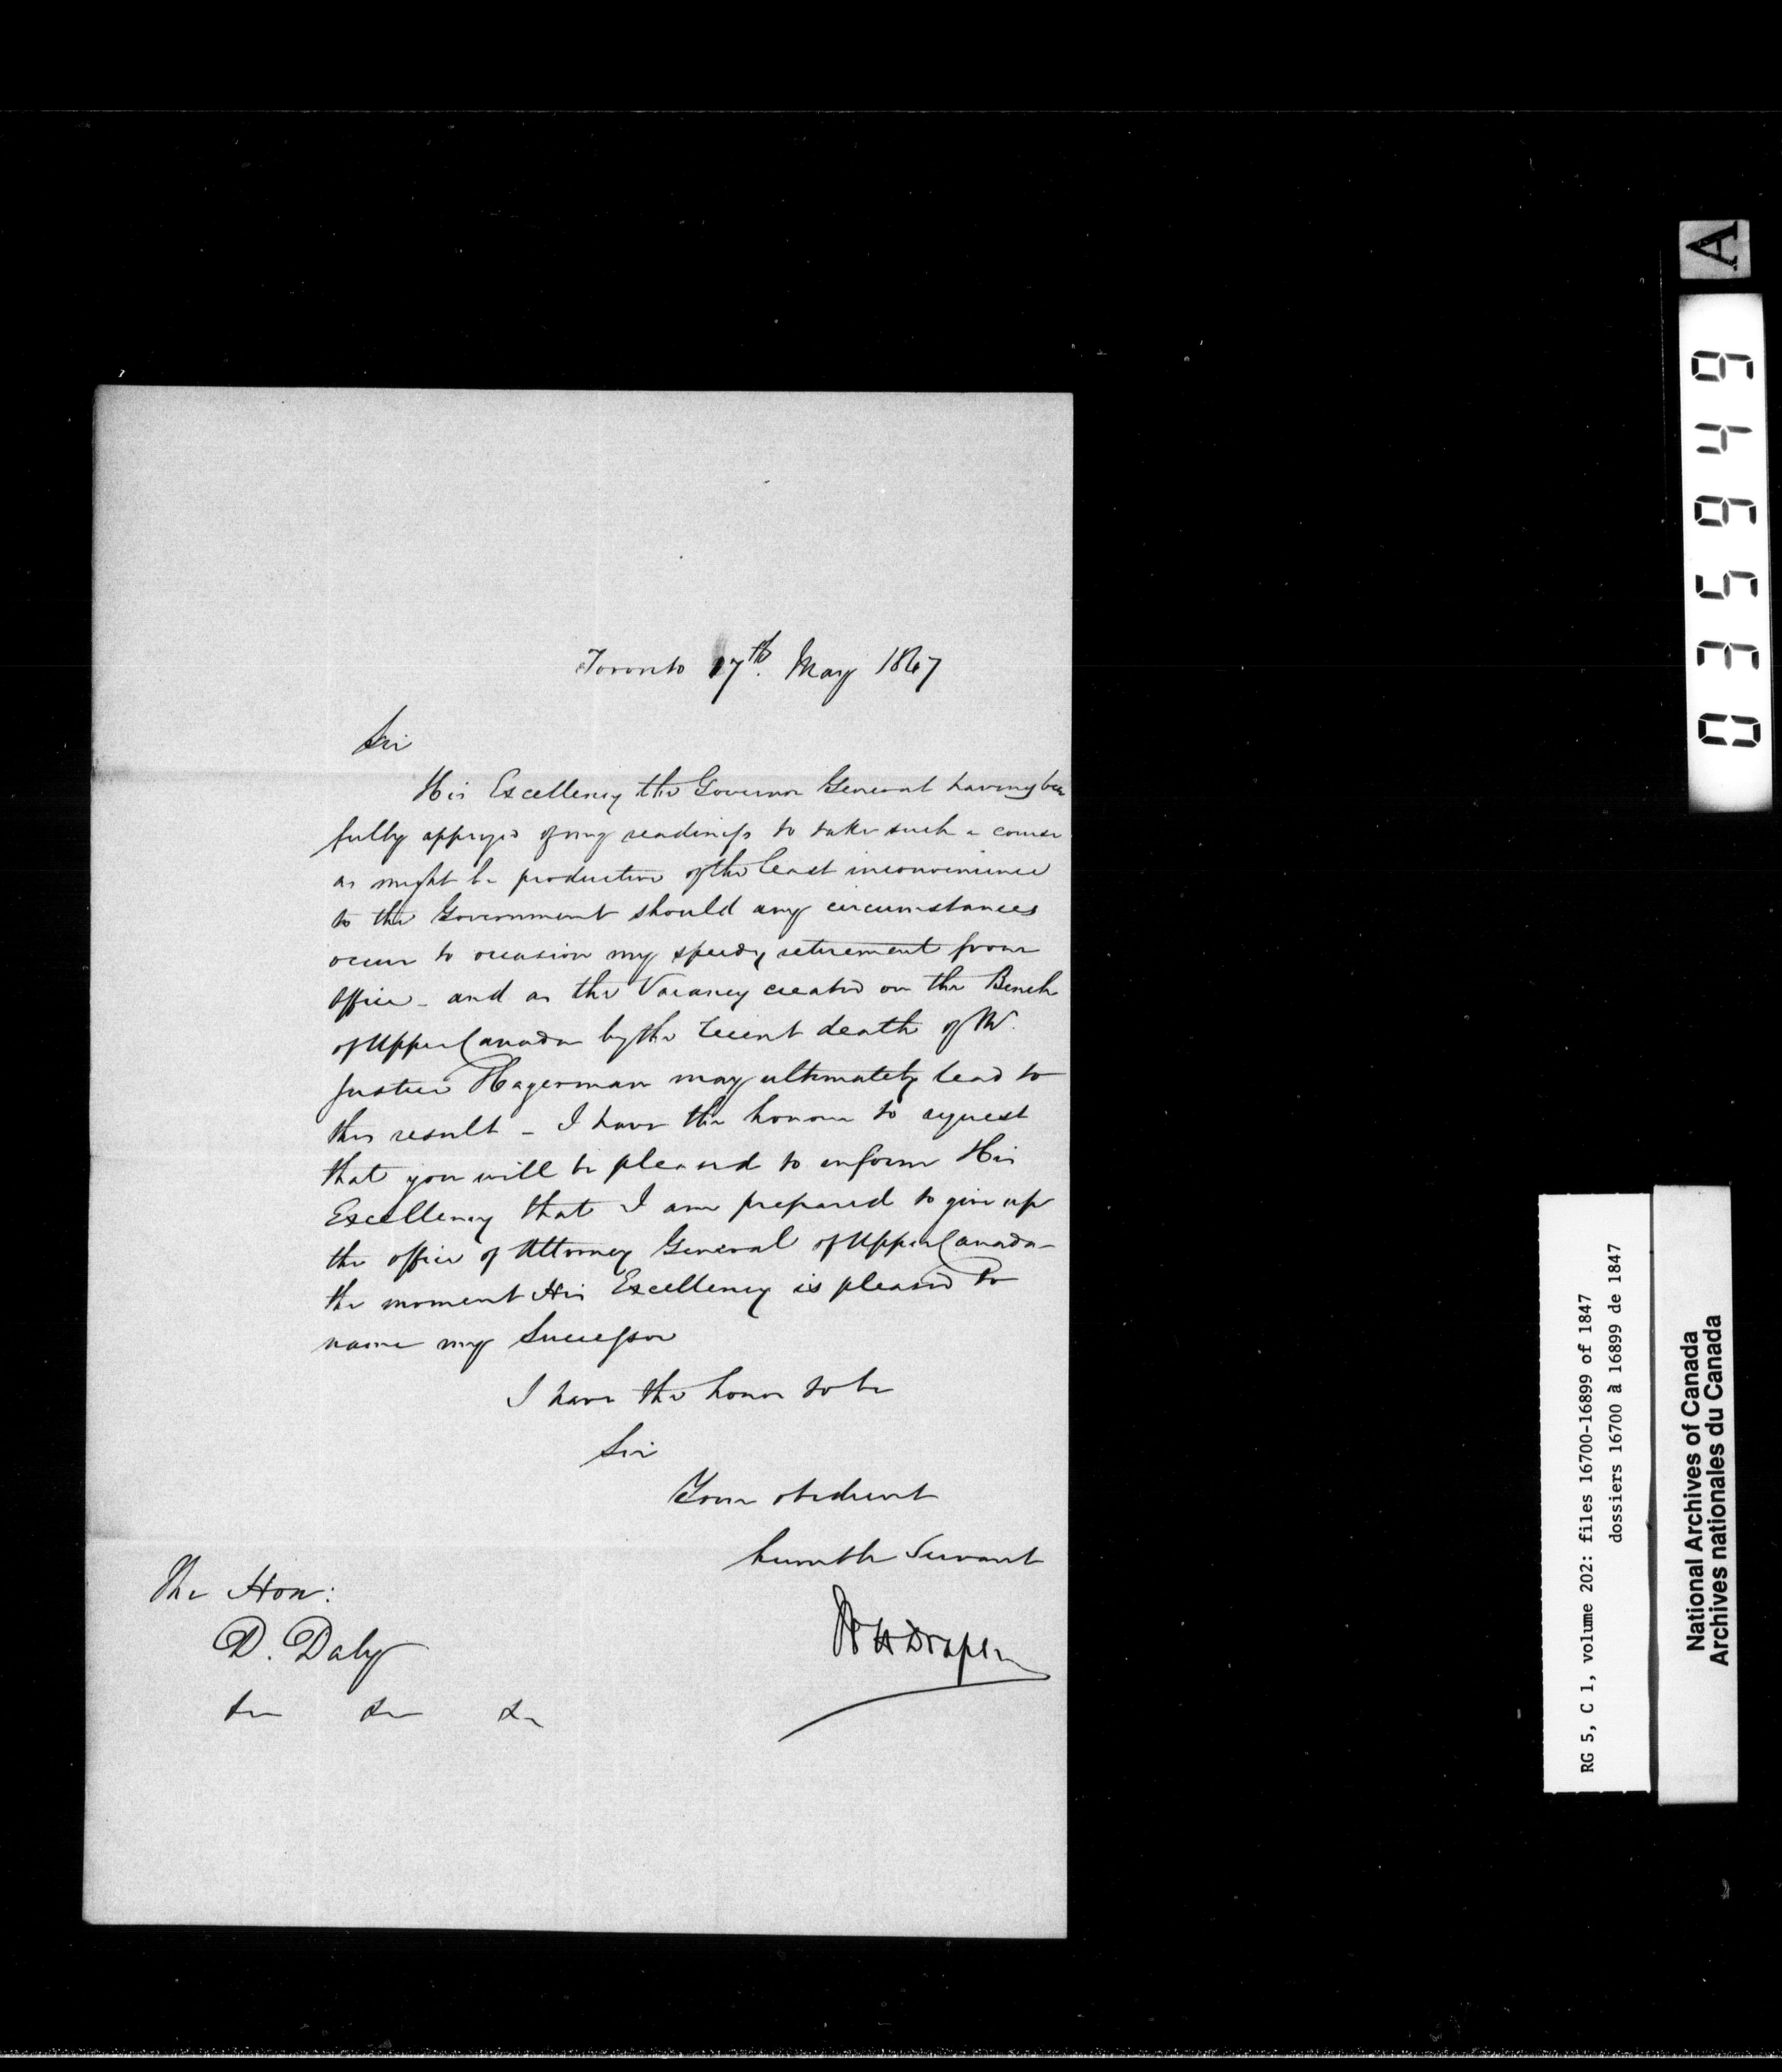 Toronto 17th. May 1847
Sir
His Excellency the Governor General having been
fully apprized of my readiness to take such a course
as might be productive of the least inconvenience
to the Government should any circumstances
occur to occasion my speedy retirement from
Office - and as the Vacancy created on the Bench
of Upper Canada by the recent death of Mr.
Justice Hagerman may ultimately lead to
this result - I have the honour to request
that you will be pleased to inform His
Excellency that I am prepared to give up
the office of Attorney General of Upper Canada -
the moment His Excellency is pleased to
name my Successor
I have the honor to be
Sir
Your obedient
humble Servant
Wm H Draper
The Hon:
D. Daly
&c &c &c
A
035949
RG 5, C 1, volume 202: files 16700-16899 of 1847
dossiers 16700 à 16899 de 1847
National Archives of Canada
Archives nationales du Canada